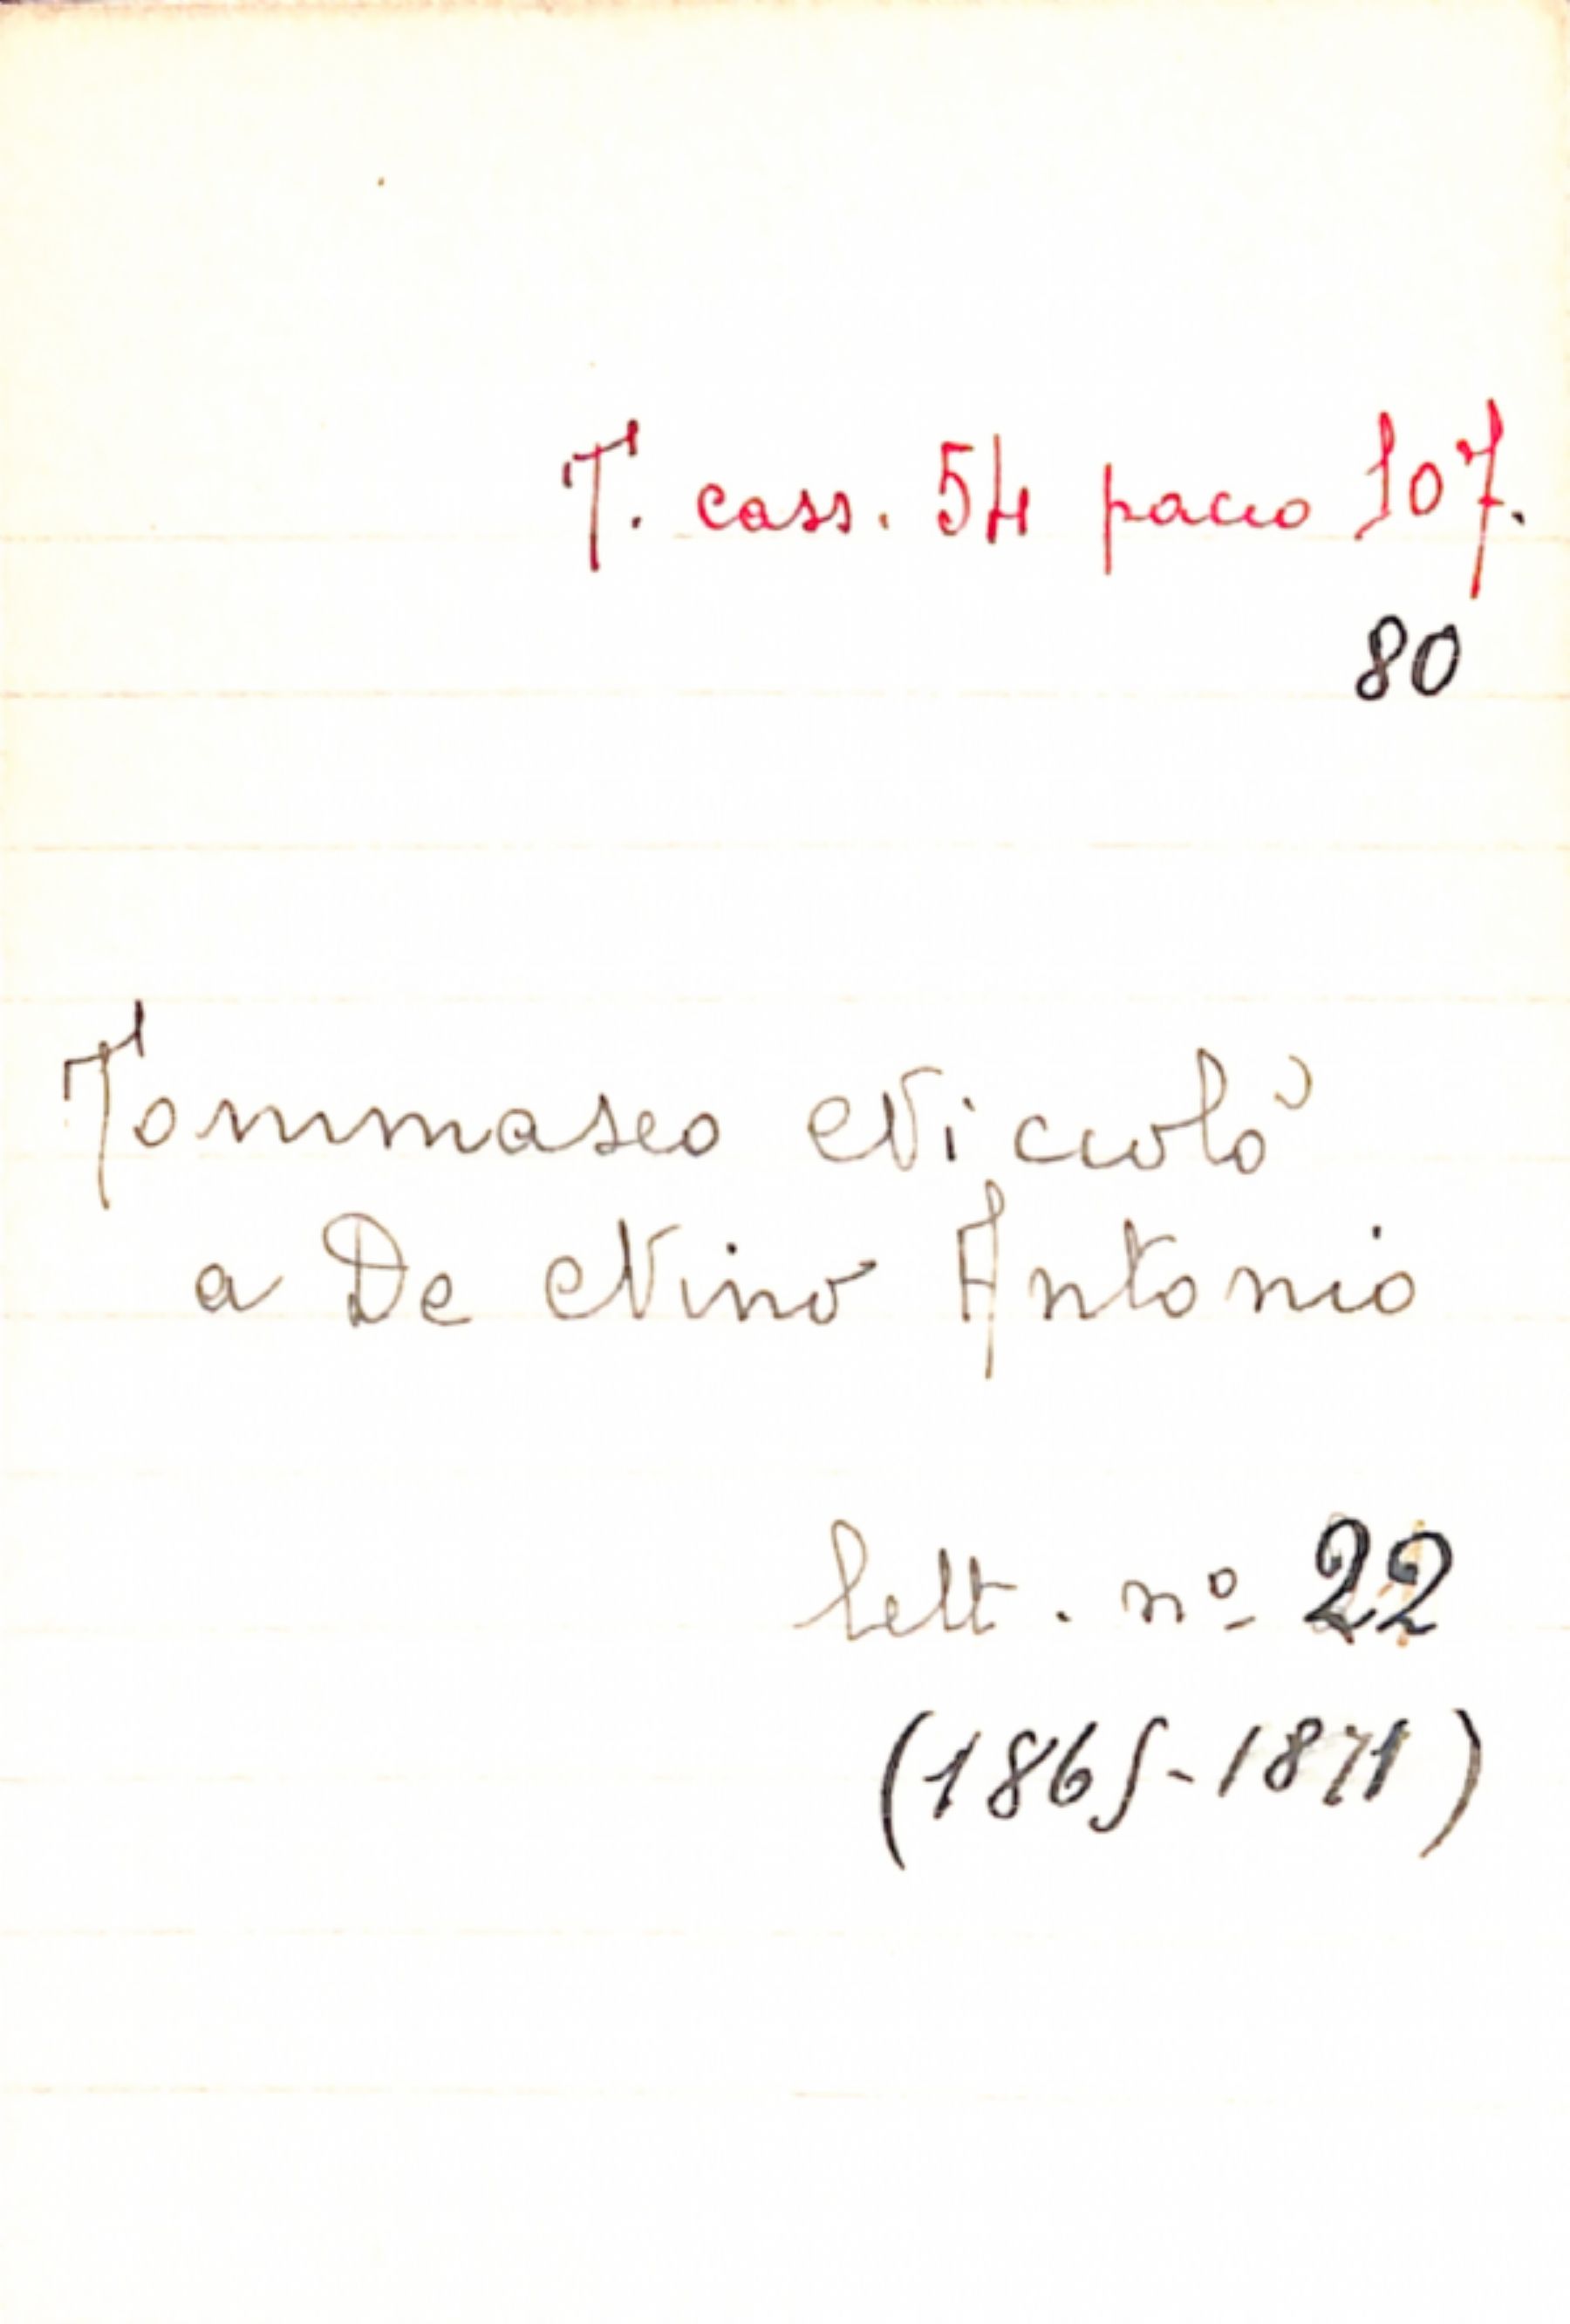 T. cass. 54 pacco 107.
80
Tommaseo Niccolò
a De Nino Antonio
lett. nº 22
(1865-1871)